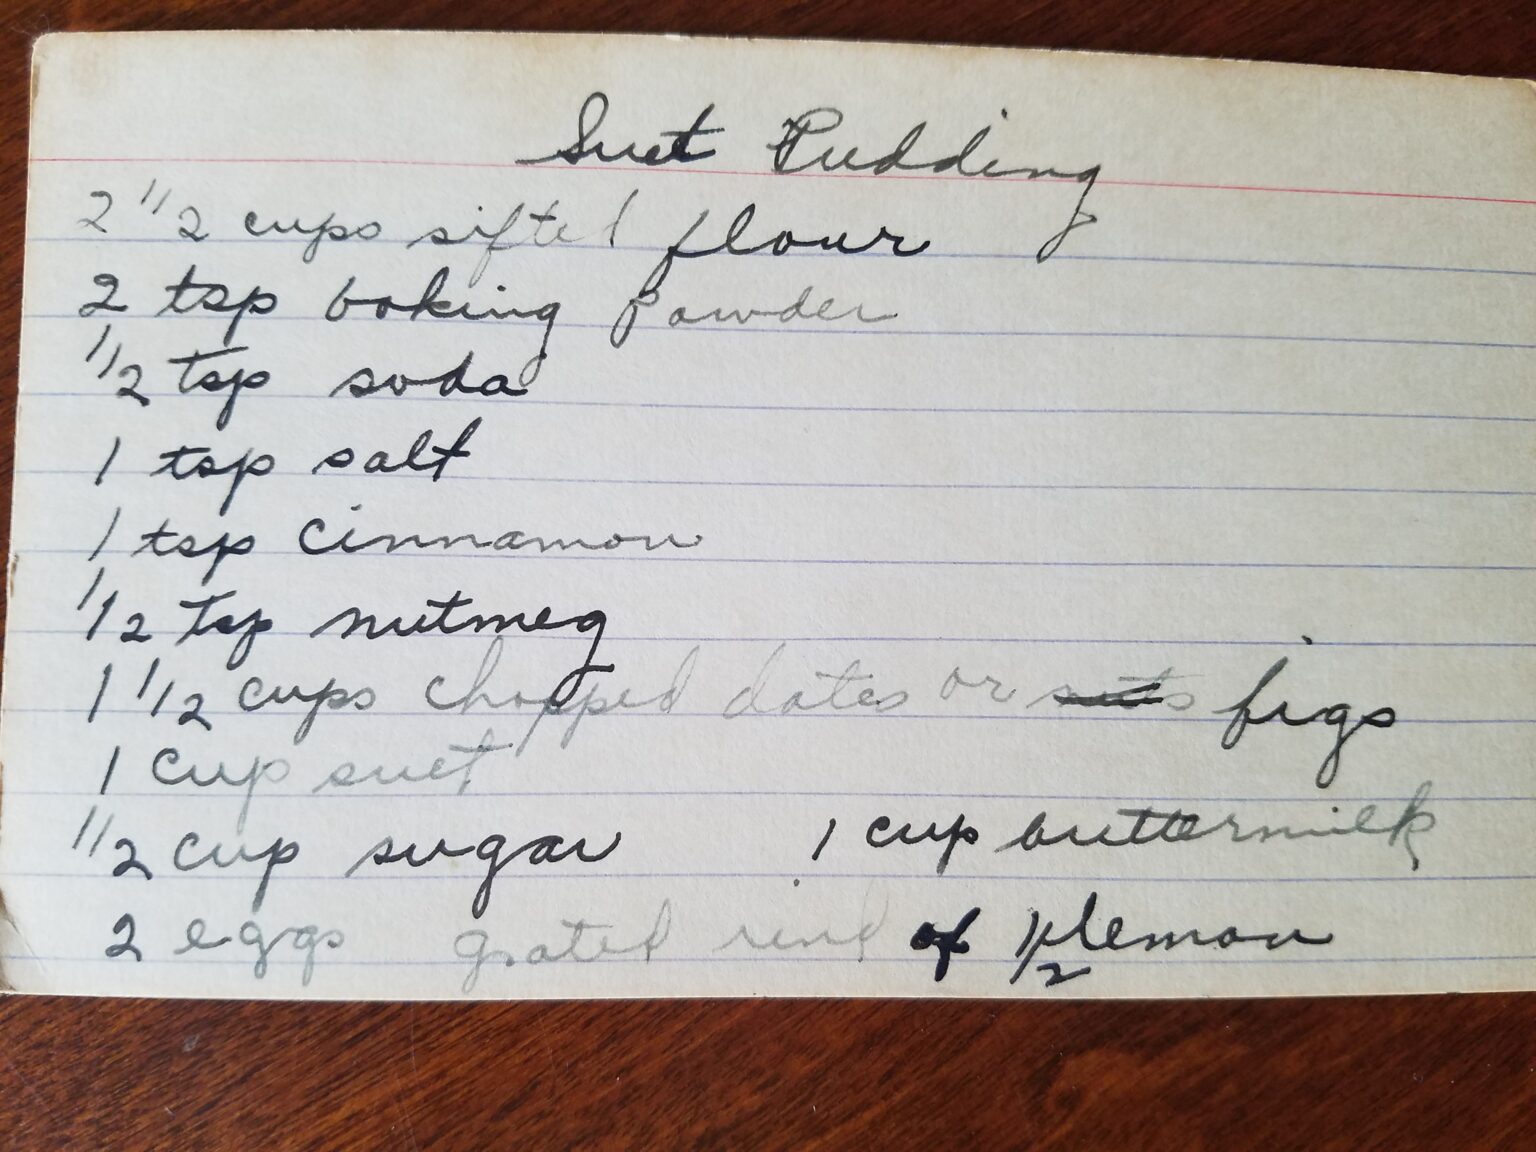 Suet Pudding
2 1/2 cups sifted flour
2 tsp baking Powder
1/2 tsp soda
1 tsp salt
1 tsp cinnamon
1/2 tsp nutmeg
1 1/2 cups chopped dates or figs
1 cup suet
1/2 cup sugar 1 cup buttermilk
2 eggs grated rind of 1/2 lemon